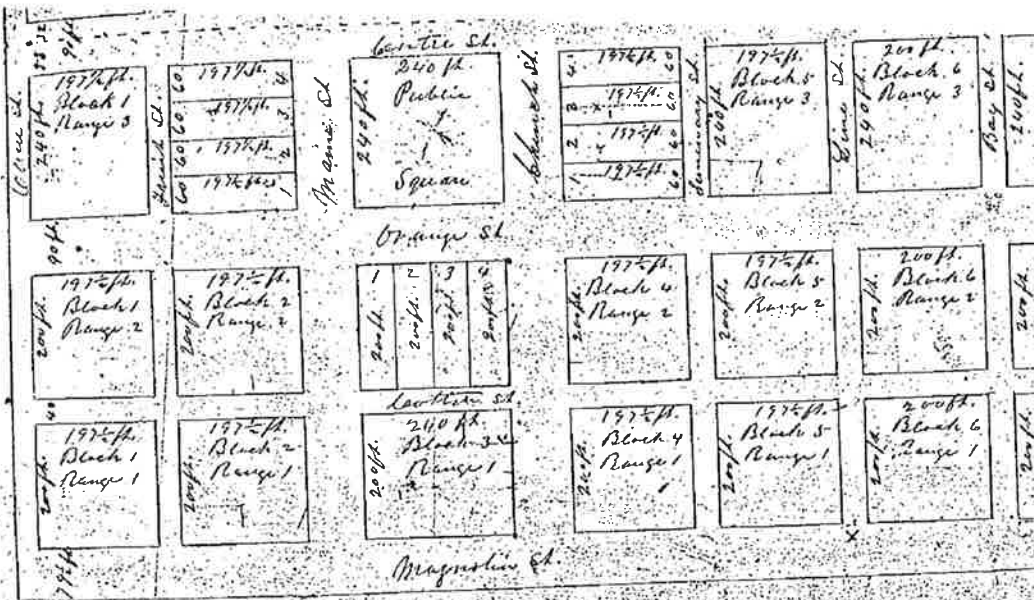 Centre St.
90 ft.
197½ ft.
Block 1
Range 3
240 ft.
Fruit St.
197½ ft. 4
197½ ft. 3
197½ ft. 2
197½ ft. 1
60 60 60 60
Maine St.
240 ft.
Public
Square
240 ft.
Church St.
4 197½ ft. 60
3 197½ ft. 60
2 197½ ft. 60
1 197½ ft. 60
Seminary St.
197½ ft.
Block 5
Range 3
240 ft.
Lime St.
200 ft.
Block 6
Range 3
240 ft.
Bay St.
240 ft.
90 ft.
Orange St.
197½ ft.
Block 1
Range 2
200 ft.
197½ ft.
Block 2
Range 2
200 ft.
1 2 3 4
200 ft. 200 ft. 200 ft. 200 ft.
197½ ft.
Block 4
Range 2
200 ft.
197½ ft.
Block 5
Range 2
200 ft.
200 ft.
Block 6
Range 2
200 ft.
200 ft.
40
St.
197½ ft.
Block 1
Range 1
200 ft.
197½ ft.
Block 2
Range 1
200 ft.
240 ft.
Block 3
Range 1
200 ft.
197½ ft.
Block 4
Range 1
200 ft.
197½ ft.
Block 5
Range 1
200 ft.
200 ft.
Block 6
Range 1
200 ft.
200 ft.
79½ ft.
Magnolia St.